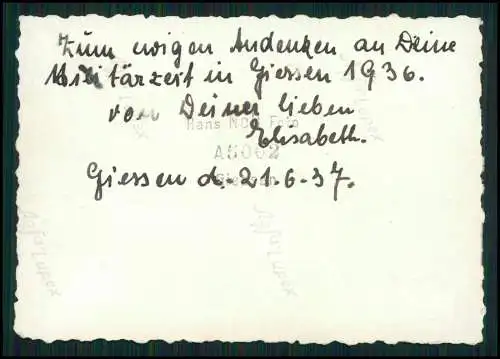 Zum ewigen Andenken an Deine
Militärzeit in Giessen 1936.
von Deiner lieben
Hans Foto
Elisabeth.
A5002
Giessen d. 21.6.37.
Giessen